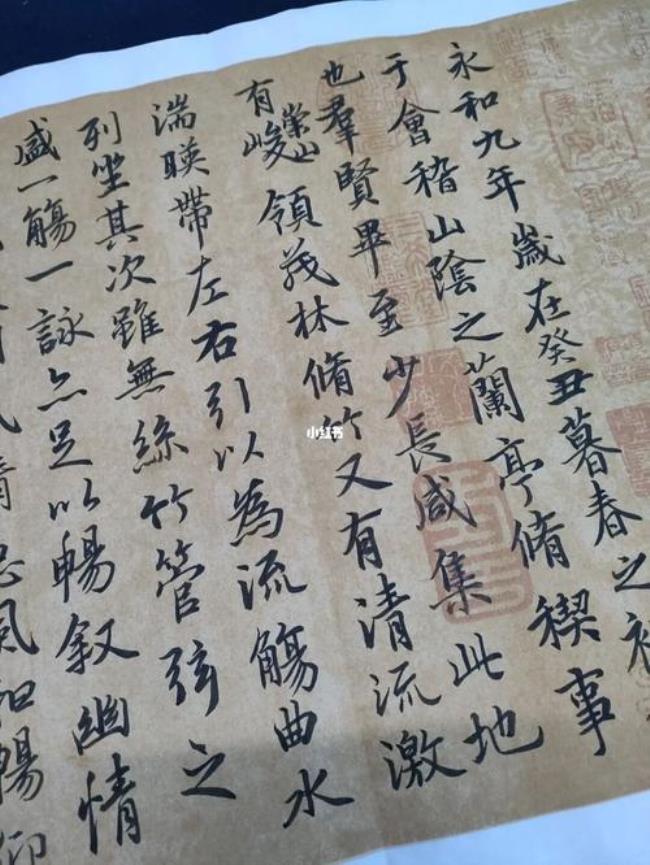 永和九年歲在癸丑暮春之初
于會稽山陰之蘭亭脩稧事
也羣賢畢至少長咸集此地
有崇山峻領茂林脩竹又有清流激
湍暎帶左右引以為流觴曲水
列坐其次雖無絲竹管弦之
盛一觴一詠亦足以暢叙幽情
清惠風和暢仰
小红书